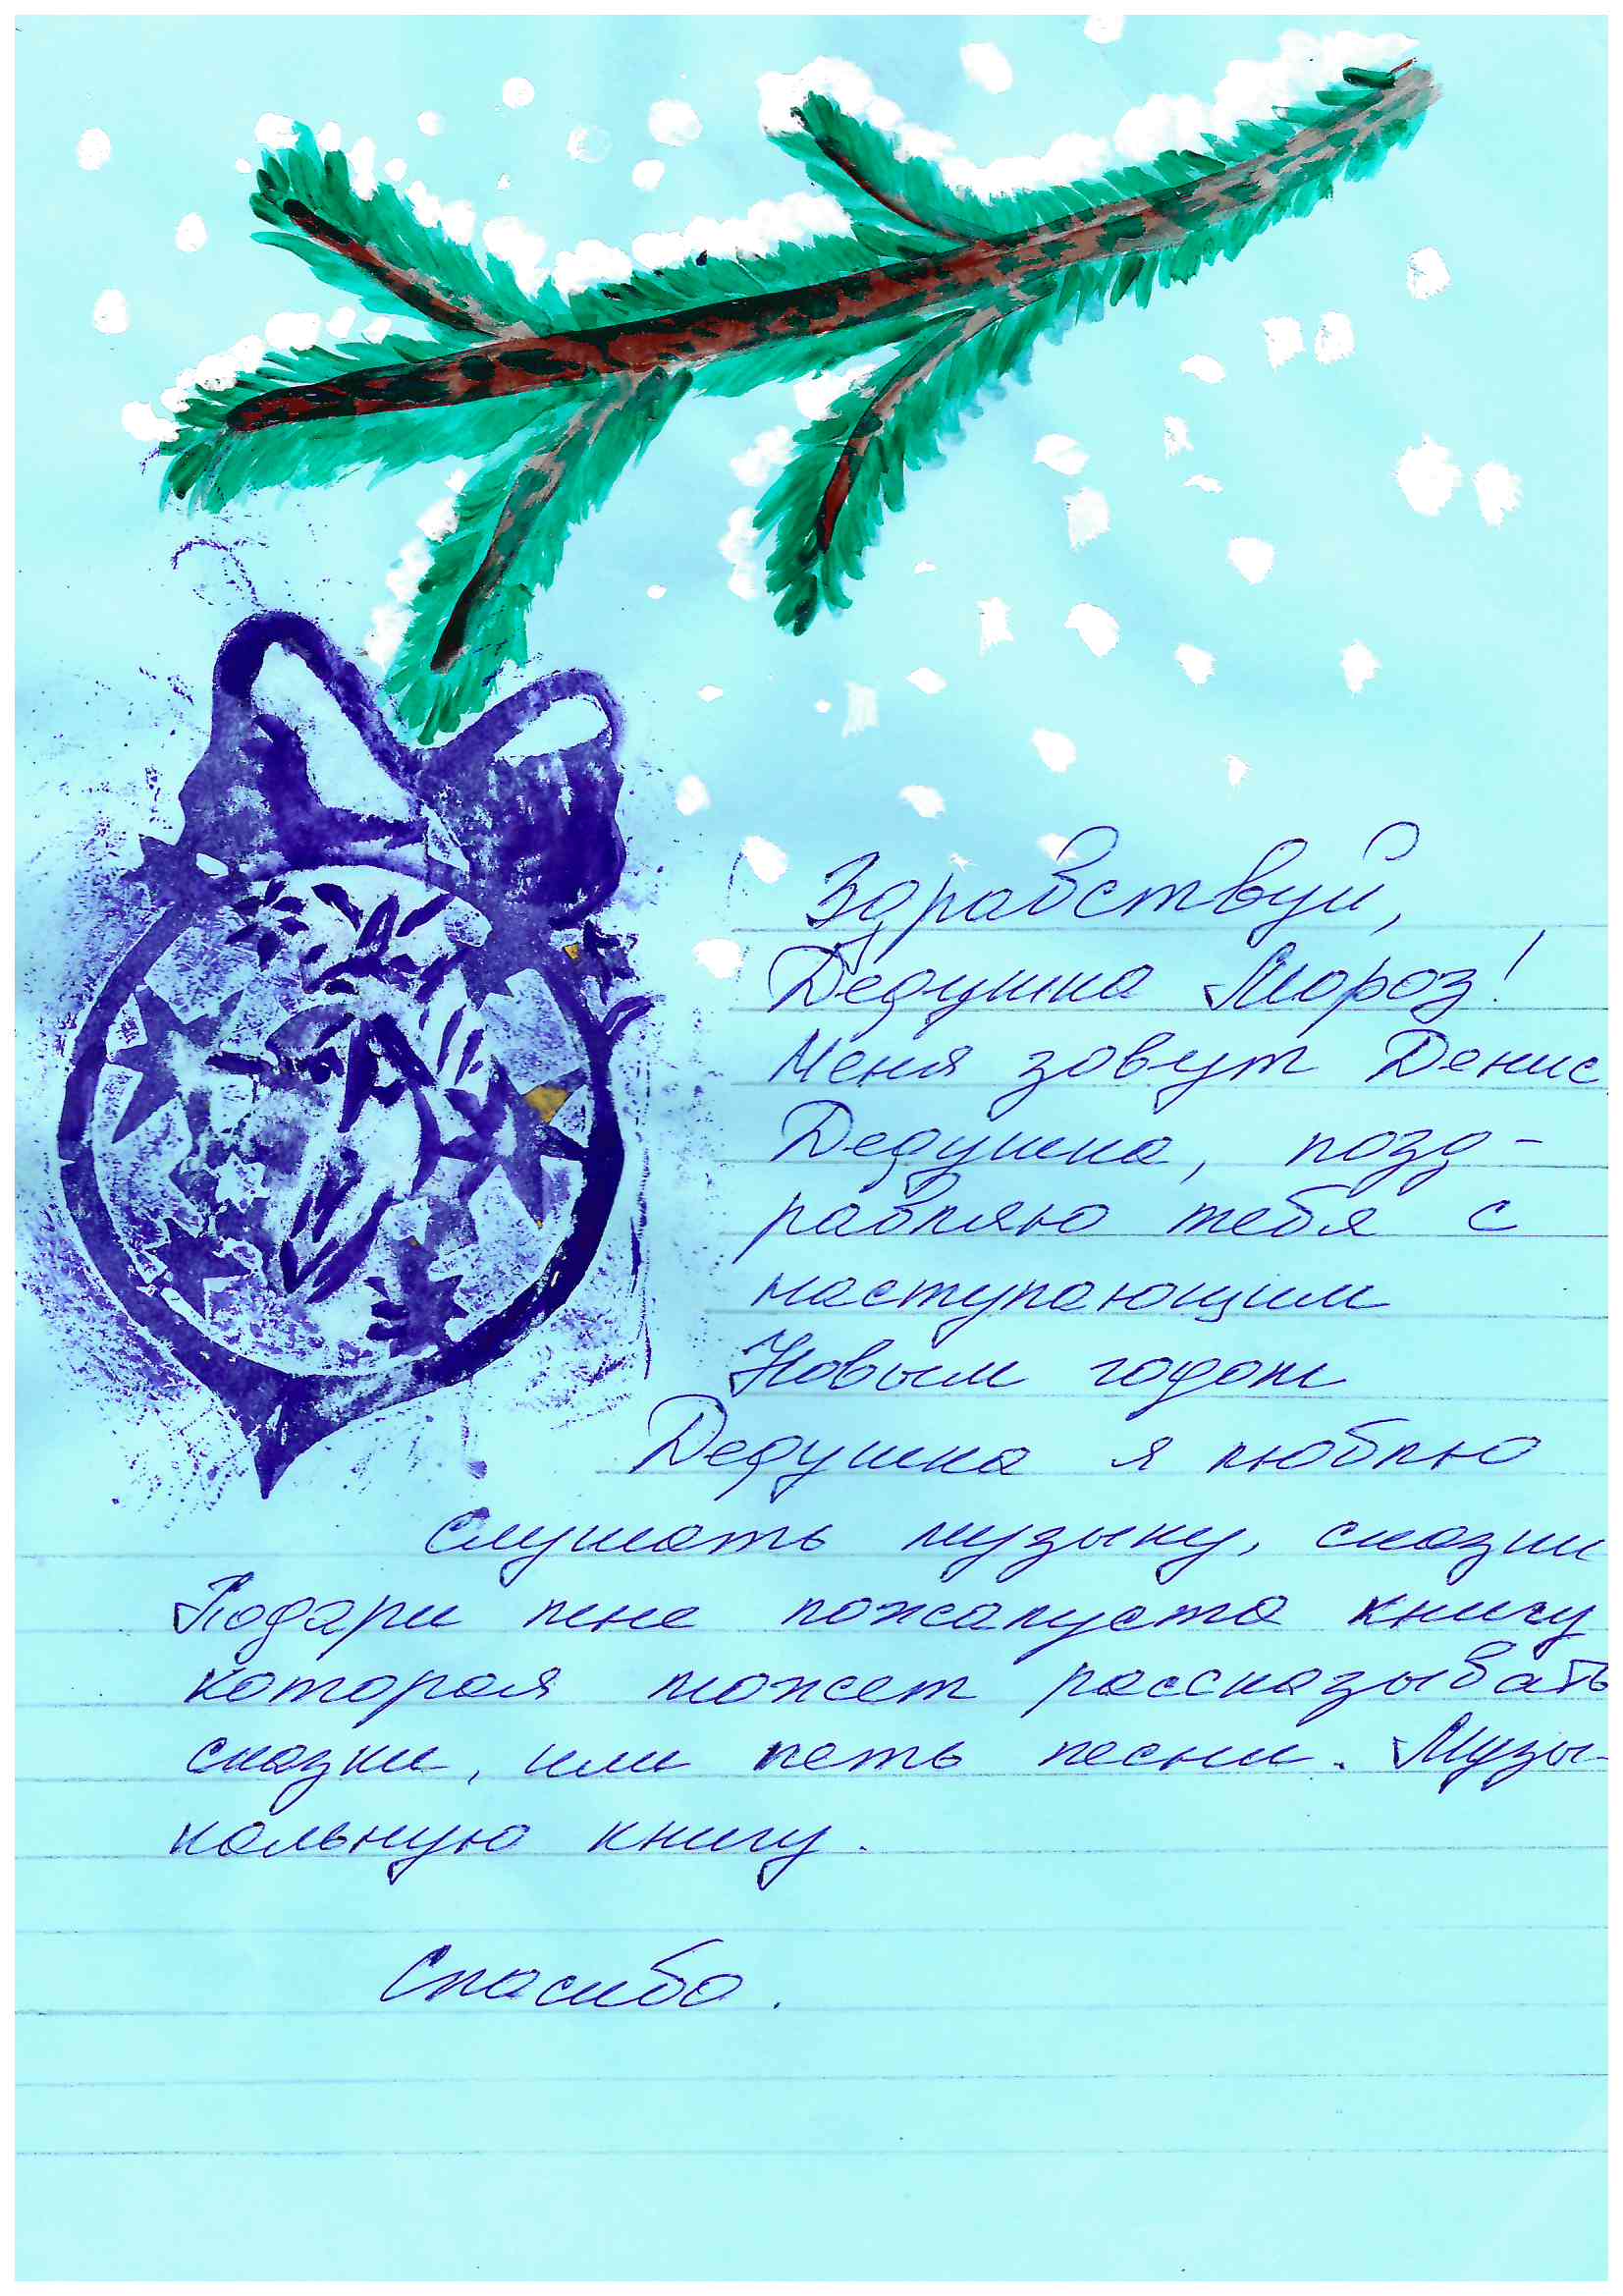 Здравствуй,
Дедушка Мороз!
Меня зовут Денис
Дедушка, позд-
равляю тебя с
наступающим
Новым годом
Дедушка я люблю
слушать музыку, сказки
Подари мне пожалуста книгу
которая может рассказывать
сказки, или петь песни. Музы-
кальную книгу.
Спасибо.